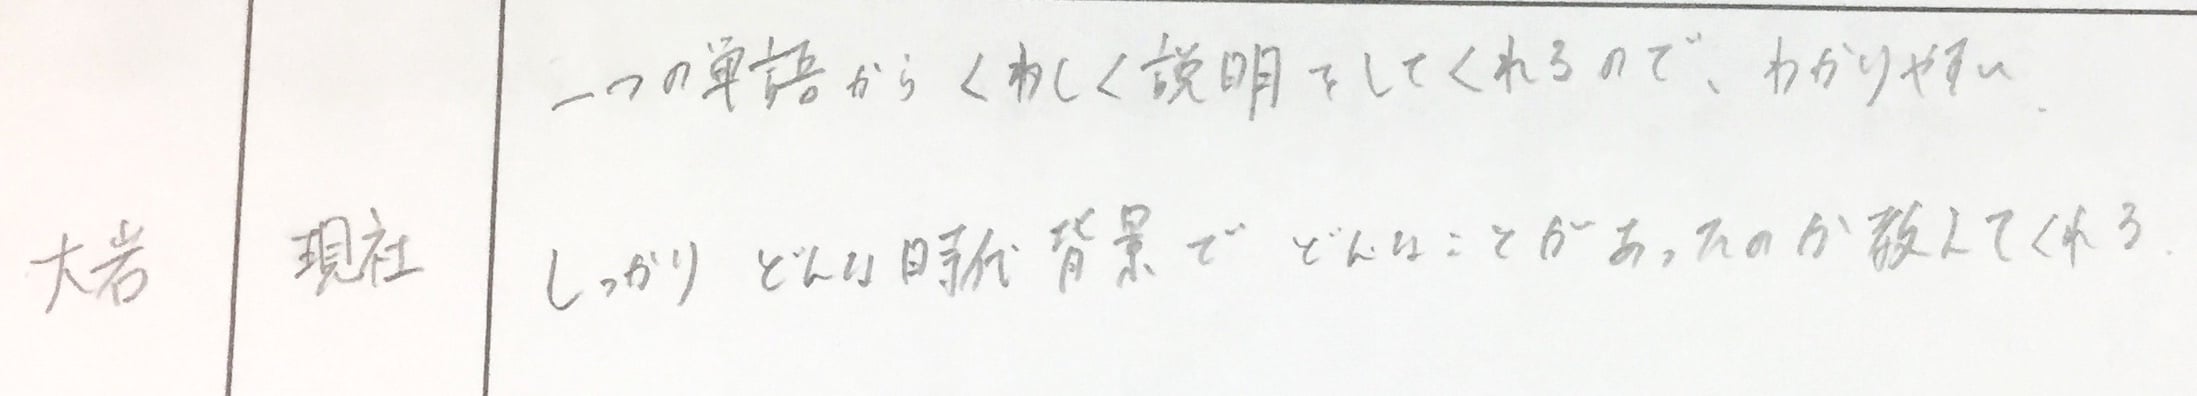 一つの単語からくわしく説明をしてくれるので、わかりやすい.
大岩 現社 しっかりどんな時代背景でどんなことがあったのか教えてくれる.